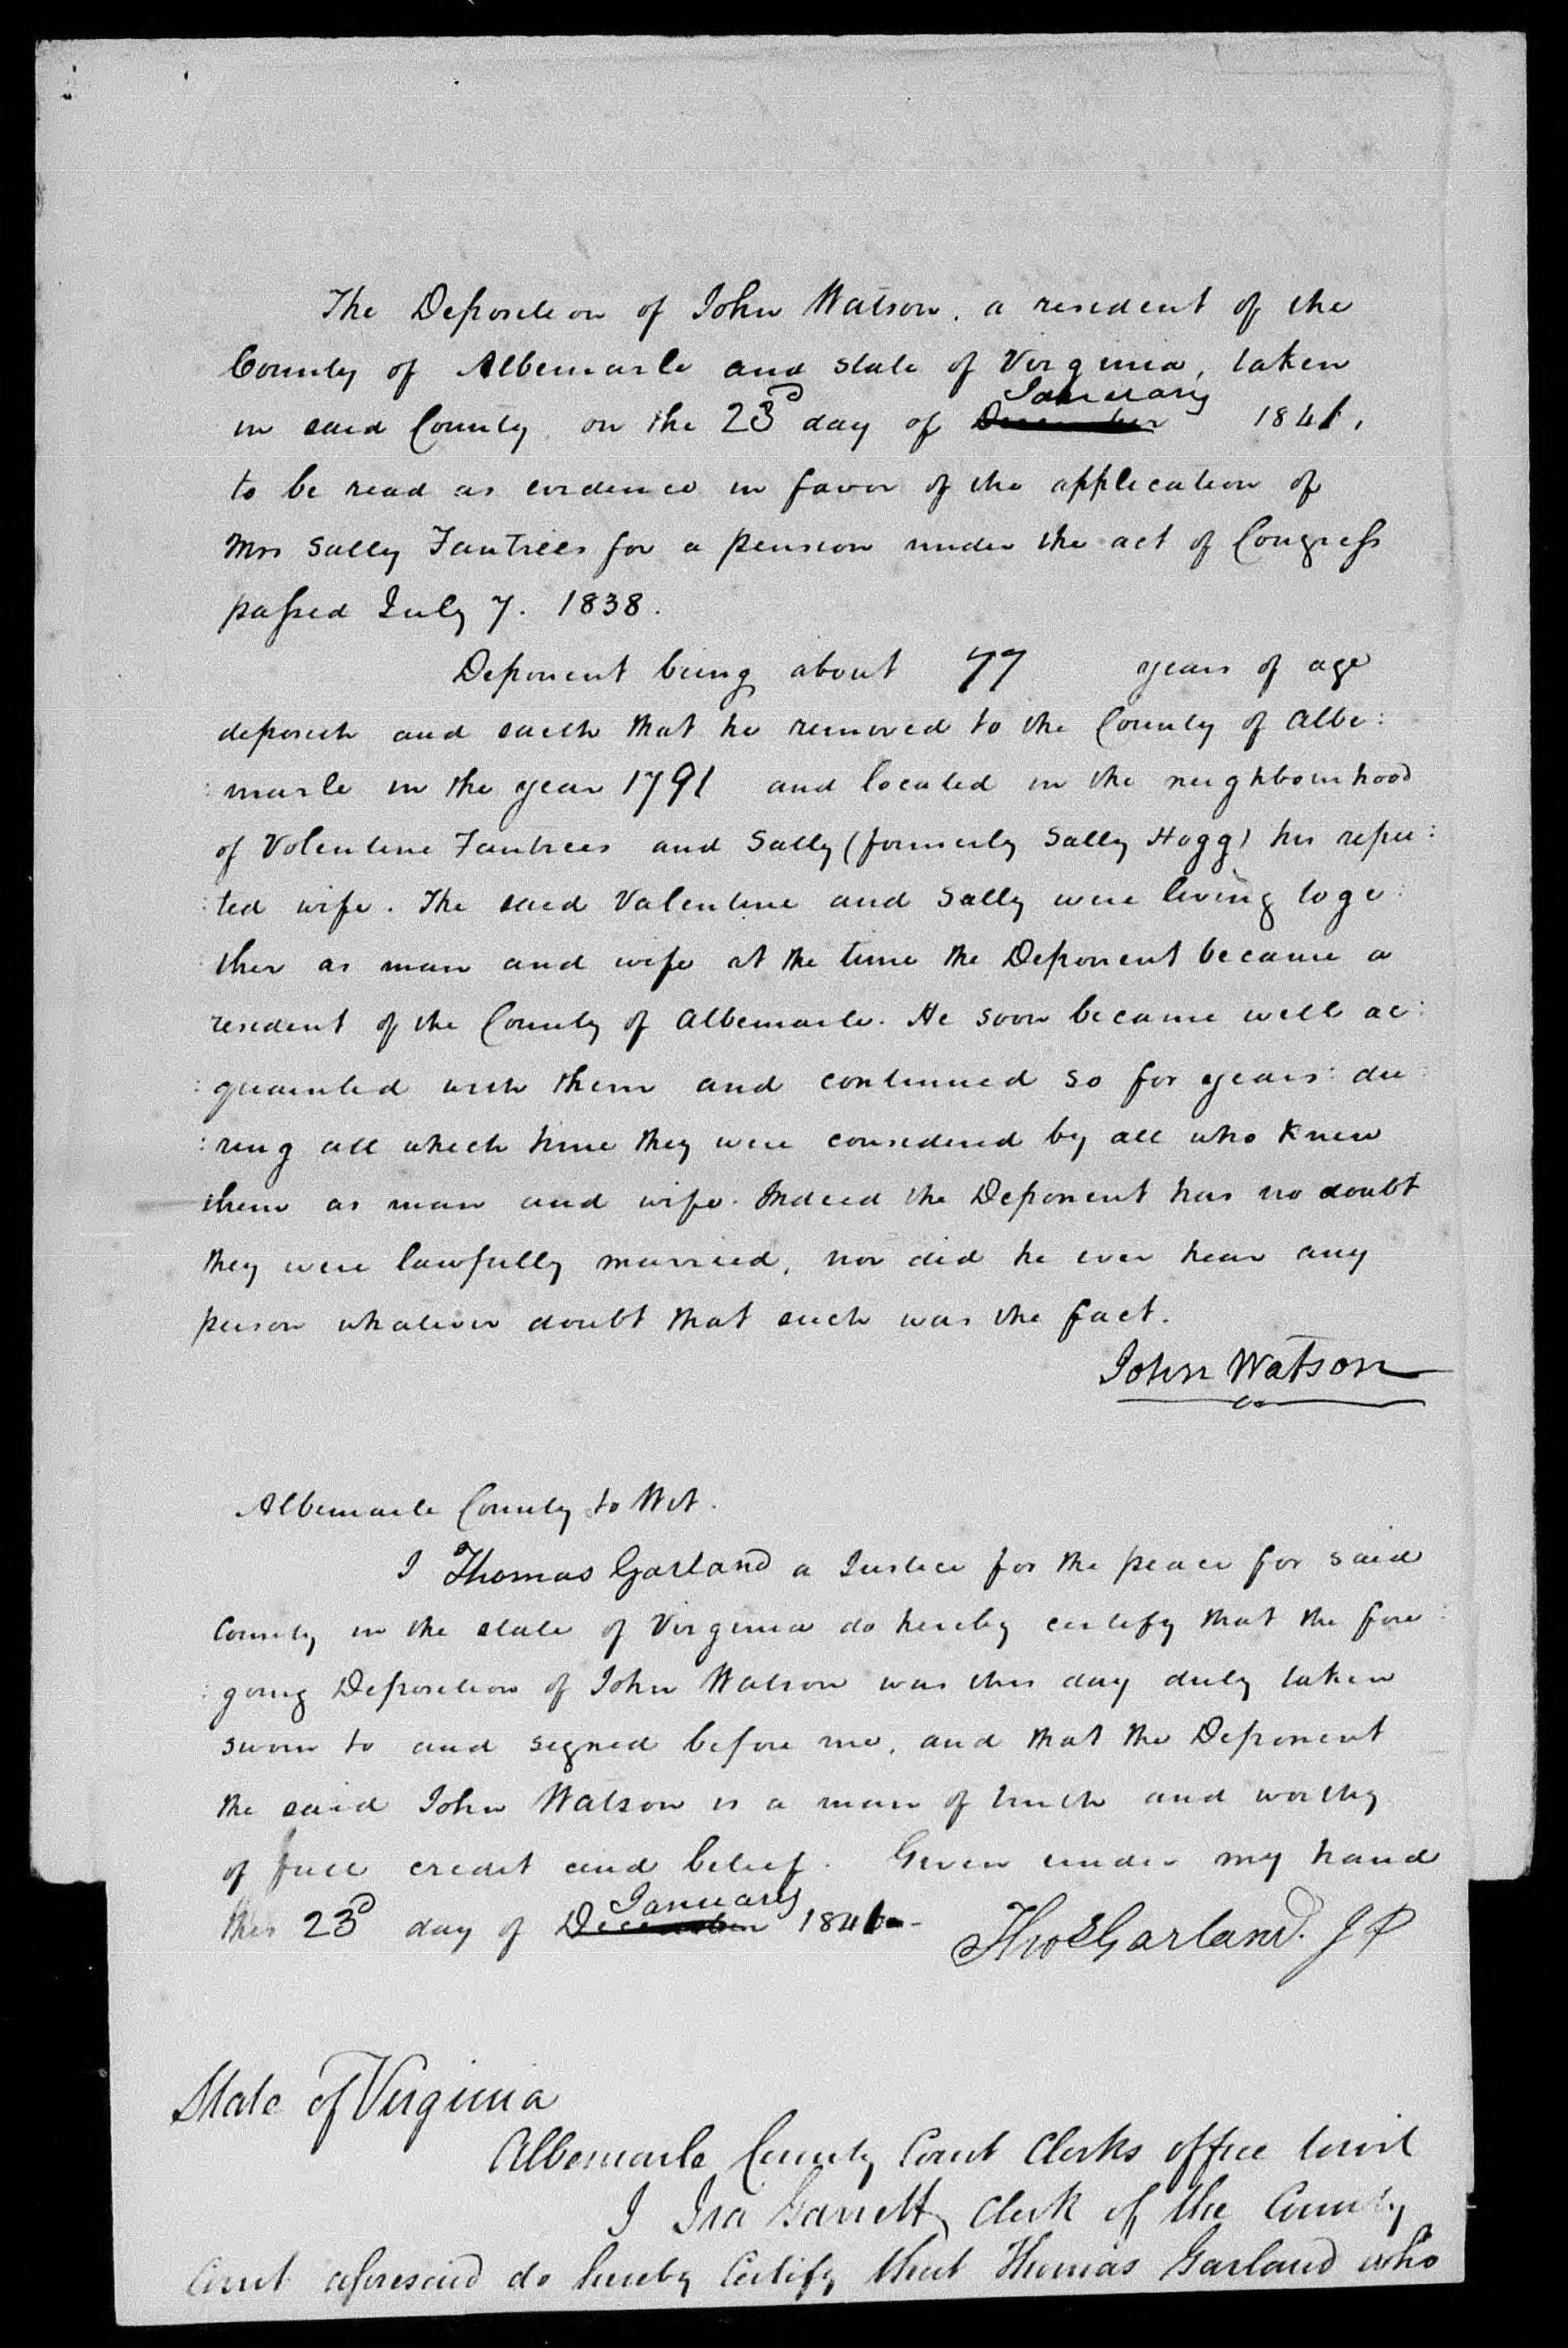 The Deposition of John Watson, a resident of the
County of Albemarle and state of Virginia, taken
in said County on the 23d day of December January 1841,
to be read as evidence in favor of the application of
Mrs Sally Fantrees for a pension under the act of Congress
passed July 7. 1838.
Deponent being about 77 years of age
deposeth and saith that he removed to the County of Albe:
:marle in the year 1791 and located in the neighbourhood
of Valentine Fantrees and Sally (formerly Sally Hogg) his repu:
:ted wife. The said Valentine and Sally were living toge:
:ther as man and wife at the time the Deponent became a
resident of the County of Albemarle. He soon became well ac:
:quainted with them and continued so for years: du:
:ring all which time they were considered by all who knew
them as man and wife. Indeed the Deponent has no doubt
they were lawfully married, nor did he ever hear any
person whatever doubt that such was the fact.
John Watson
Albemarle County to Wit.
I Thomas Garland a Justice for the peace for said
County in the state of Virginia do hereby certify that the fore:
:going Deposition of John Watson was this day duly taken
sworn to and signed before me, and that the Deponent
the said John Watson is a man of truth and worthy
of full credit and belief. Given under my hand
this 23d day of December January 1841.
Thos Garland. J P
State of Virginia
Albemarle County Court Clerks office towit
I Ira Garrett Clerk of the County
Court aforesaid do hereby Certify that Thomas Garland who